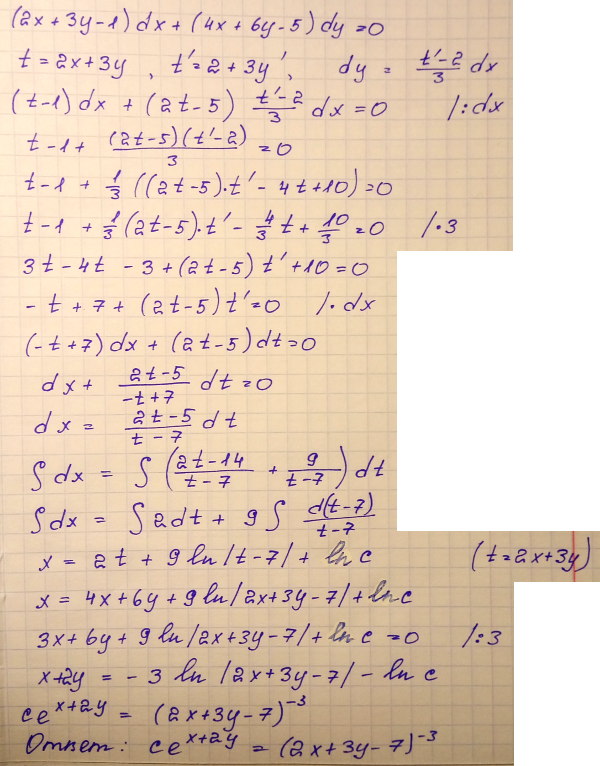 (2x+3y-1)dx+(4x+6y-5)dy=0
t=2x+3y, t'=2+3y', dy=\frac{t'-2}{3}dx
(t-1)dx+(2t-5)\frac{t'-2}{3}dx=0 /:dx
t-1+\frac{(2t-5)(t'-2)}{3}=0
t-1+\frac{1}{3}((2t-5)·t'-4t+10)=0
t-1+\frac{1}{3}(2t-5)·t'-\frac{4}{3}t+\frac{10}{3}=0 /·3
3t-4t-3+(2t-5)t'+10=0
-t+7+(2t-5)t'=0 /·dx
(-t+7)dx+(2t-5)dt=0
dx+\frac{2t-5}{-t+7}dt=0
dx=\frac{2t-5}{t-7}dt
∫dx=∫(\frac{2t-14}{t-7}+\frac{9}{t-7})dt
∫dx=∫2dt+9∫\frac{d(t-7)}{t-7}
x=2t+9ln|t-7|+ln c (t=2x+3y)
x=4x+6y+9ln|2x+3y-7|+ln c
3x+6y+9ln|2x+3y-7|+ln c=0 /:3
x+2y=-3ln|2x+3y-7|-ln c
ce^{x+2y}=(2x+3y-7)^{-3}
Ответ: ce^{x+2y}=(2x+3y-7)^{-3}